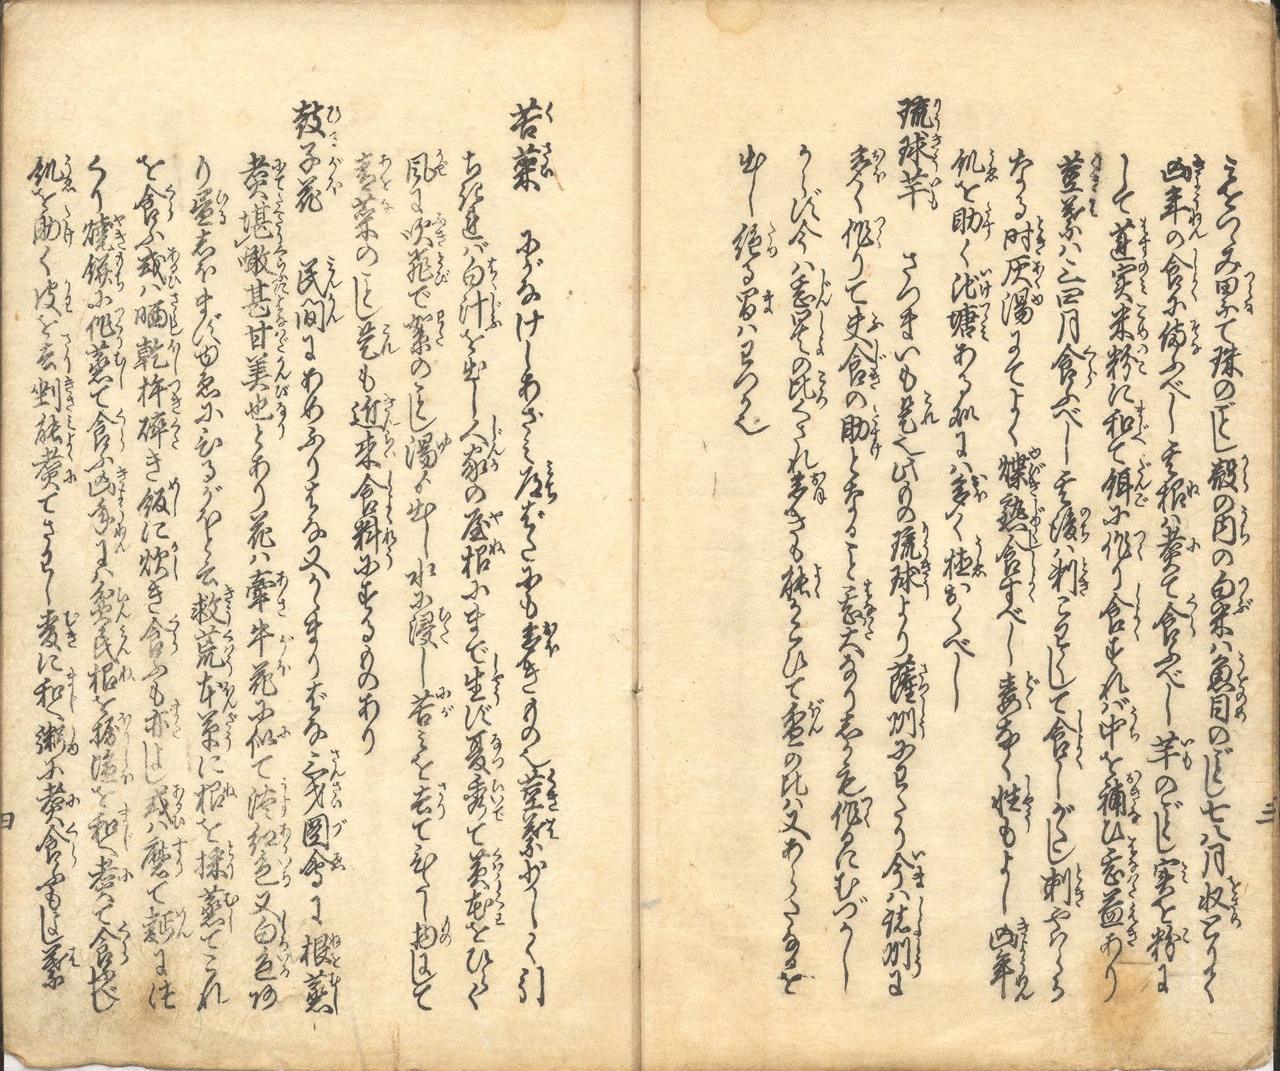 みをむつみ円にて珠のごとし殻の内の白米ハ魚目のごとし七八月収とりて
凶年の食に備ふべし其根ハ煮て食ふべし芋のごとし実を粉に
して蓮実米粉に和て餌に作り食すれバ中を補ひ甚益あり
茎葉ハ三四月食ふべし其後ハ刺こハくして食しがたし刺やハらか
なる時灰湯にてよく煠熟食すべし毒なく性もよし凶年
飢を助く池塘ある処にハ多く植おくべし
琉球芋 さつまいも是也此もの琉球より薩州にわたり今ハ諸州に
多く作りて夫食の助となること甚大なりしかし作るにむづかし
からず今ハ甚暑の比くされ多きも能かこひて雪の比ハ又あらたなるを
出し絶る間ハわづか也
苦菜 にがなけしあざミ道ばたにも多きもの也茎葉やハらかく引
ちぎれバ白汁を出し人家の屋根にまで生ず夏秀て黄花をひらく
風に吹飛で絮のごとし湯がき出し水に浸し苦ミを去てひたし物にして
青菜のごとし是も近来食料にするものあり
鼓子花 民間にあめふりはな又かまりばな三才図会に根蒸
煮堪噉甚甘美也とあり花ハ牽牛花に似て淡紅色又白色あ
り昼しほまずゆゑにひるがほと云救荒本草に根を採蒸てこれ
を食ふ或ハ晒乾杵碎き飯に炊き食ふも亦よし或ハ磨て麪につ
くり焼餅に作蒸て食ふ凶年にハ貧民根を掘塩を和へ煮て食ひ
飢を助く皮を去剉能煮てさわし麦に和へ粥に煮食ふもよし葉
三
四